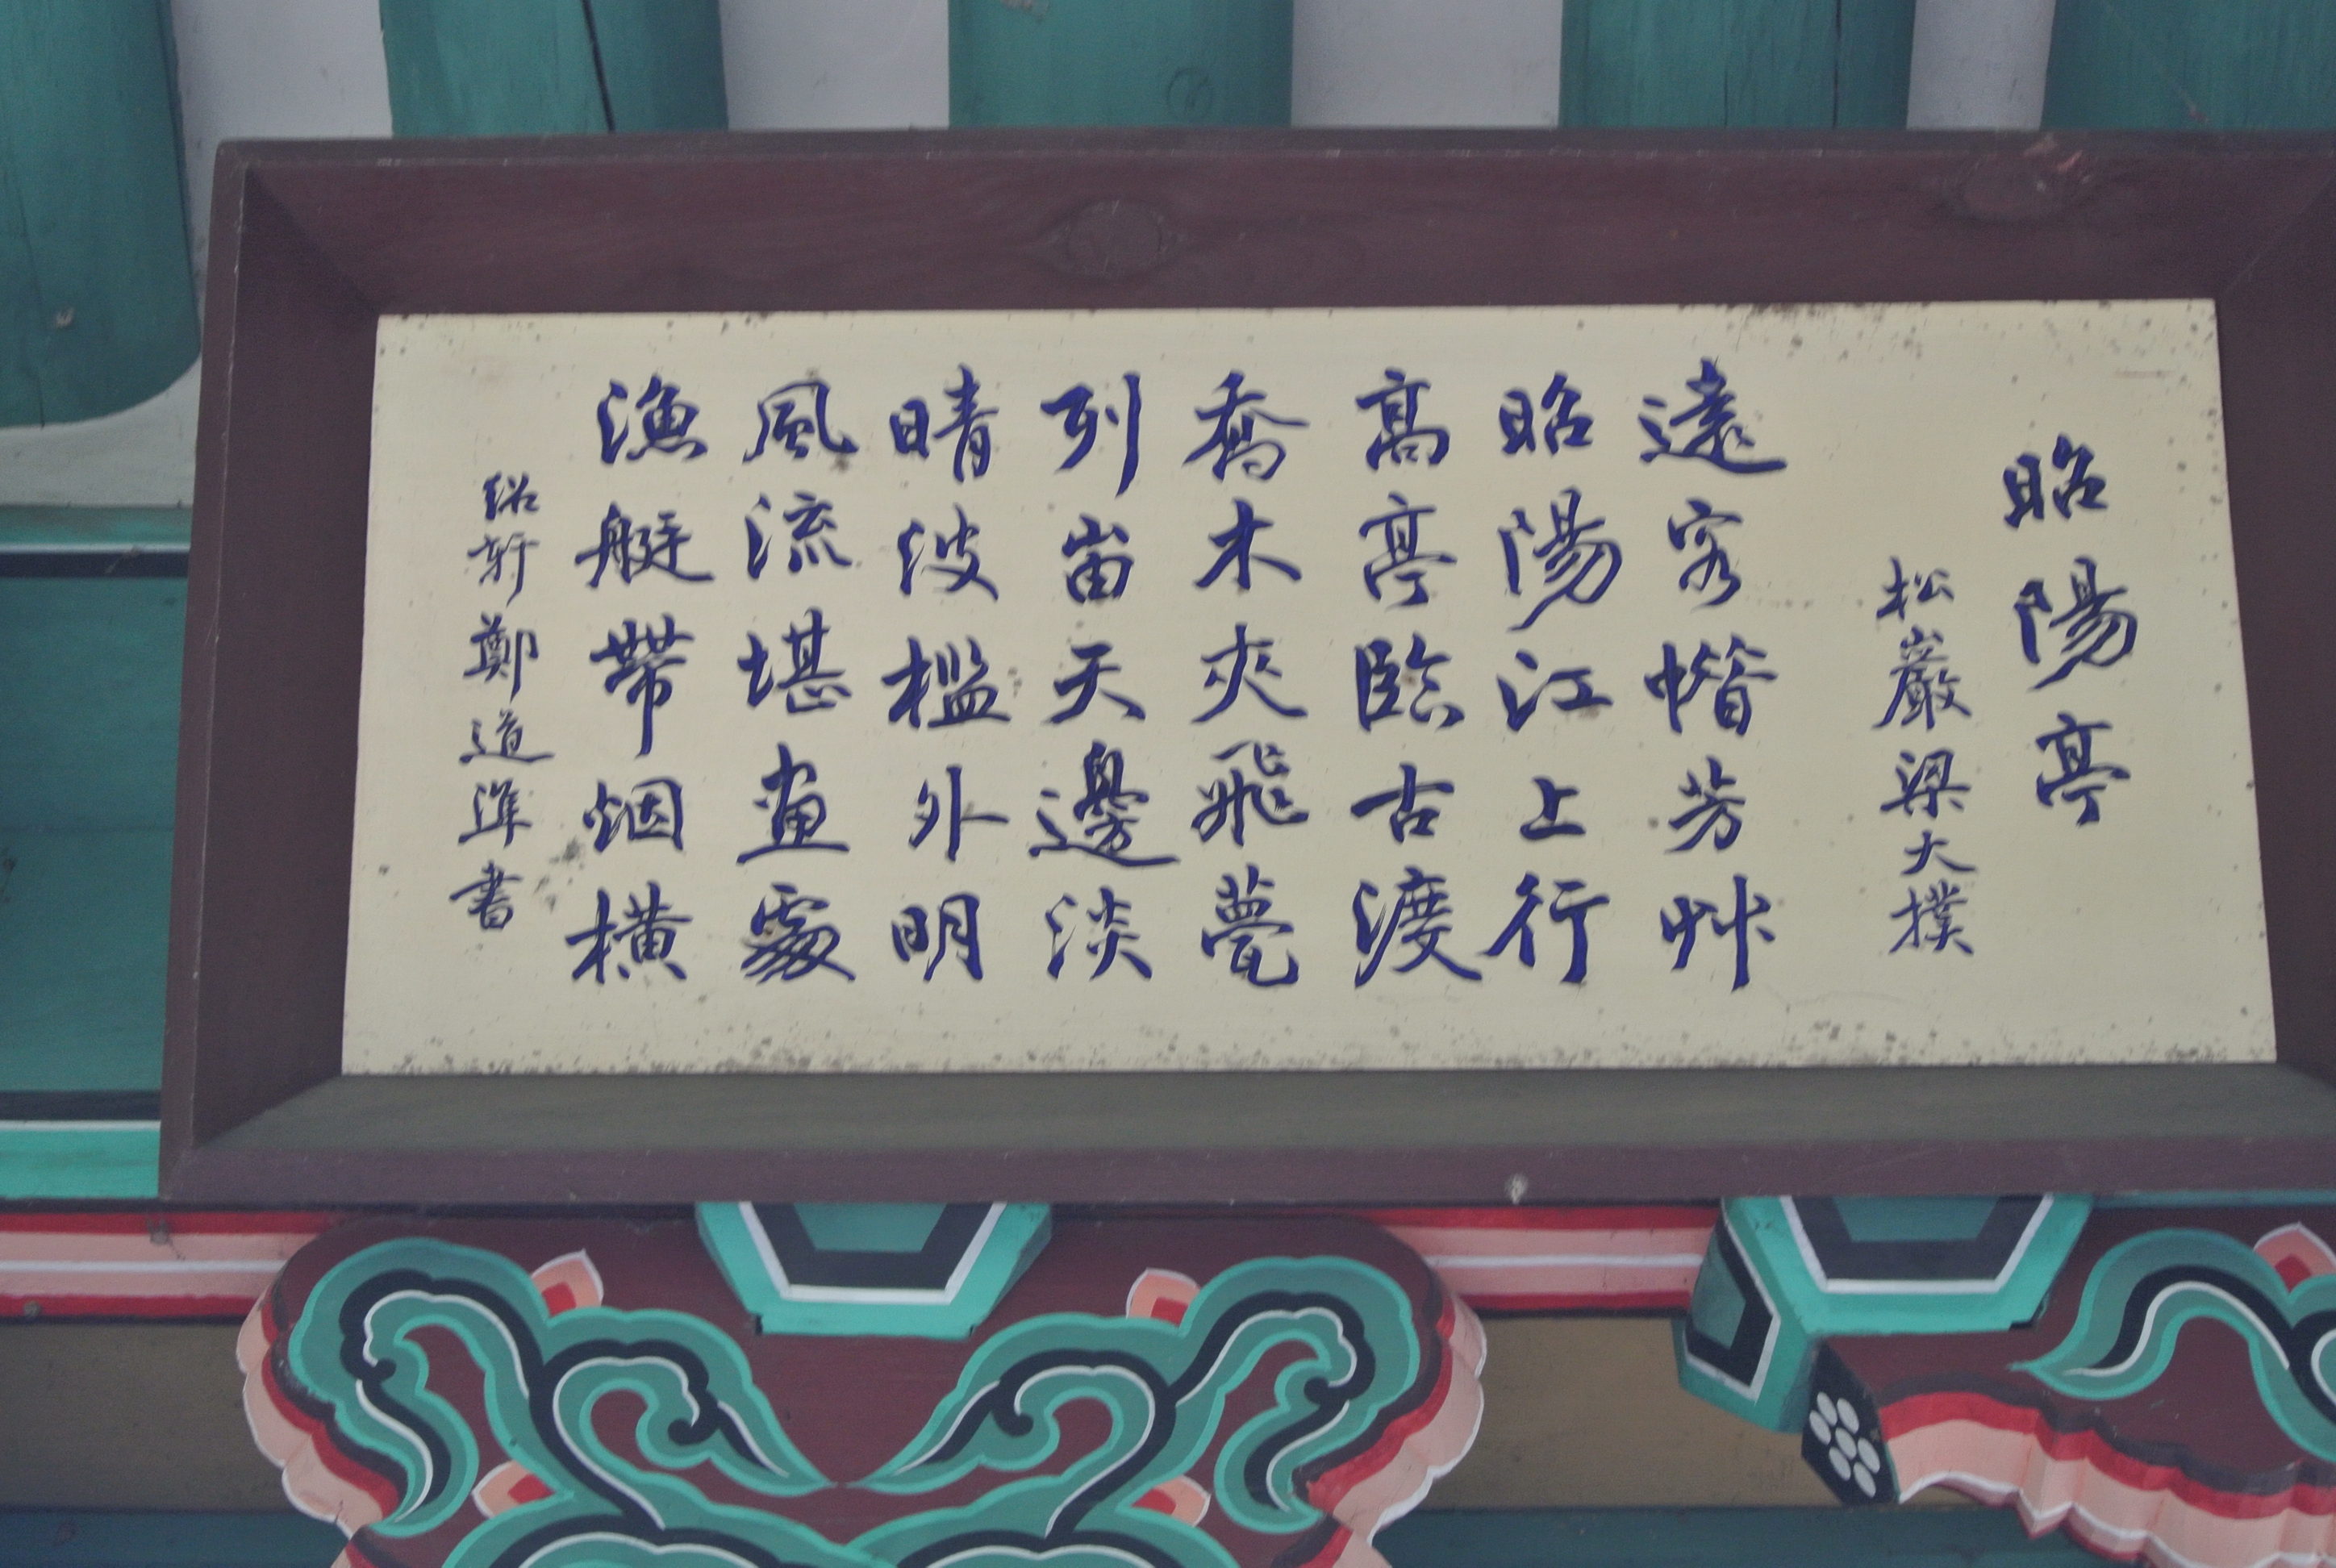 昭陽亭
松巖梁大撲
遠客惜芳艸
昭陽江上行
高亭臨古渡
喬木夾飛甍
列峀天邊淡
晴波檻外明
風流堪畫處
漁艇帶烟橫
鄭道準書